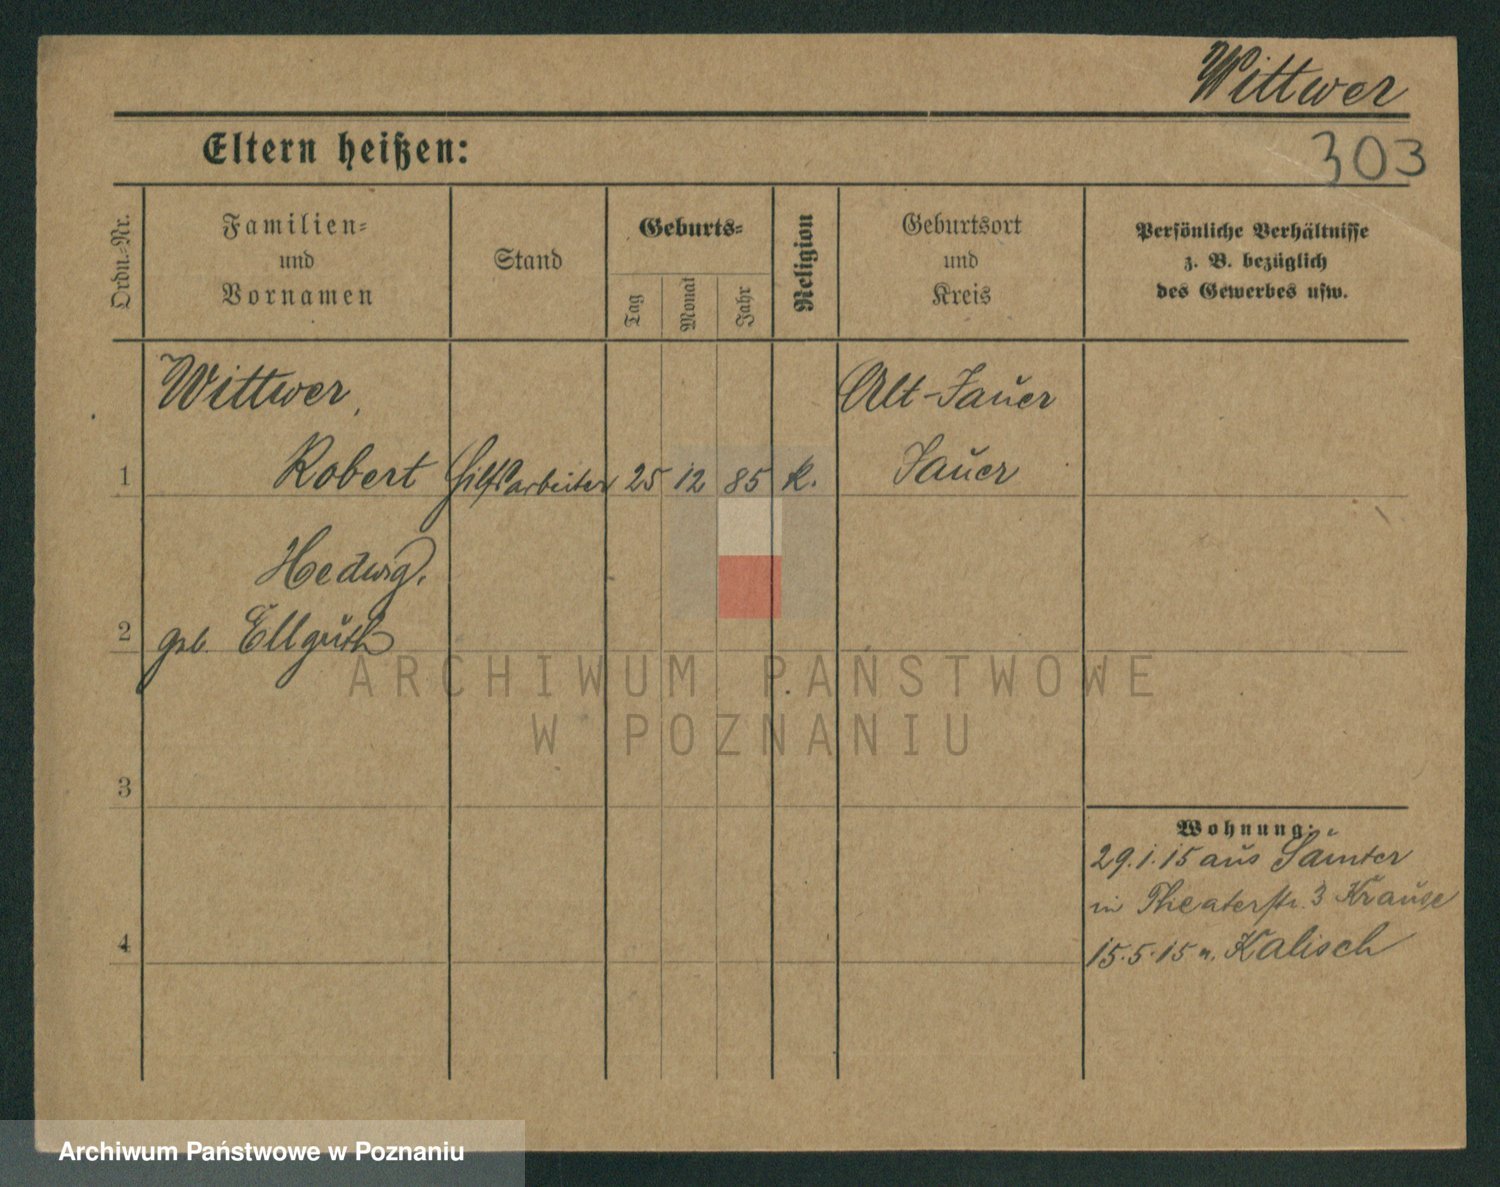 Wittwer
303
Eltern heißen:
Ordn.-Nr.
Familien-
und
Vornamen
Stand
Geburts-
Tag
Monat
Jahr
Religion
Geburtsort
und
Kreis
Persönliche Verhältnisse
z. B. bezüglich
des Gewerbes usw.
Wittwer,
Alt-Jauer
1 Robert Hilfsarbeiter 25 12 85 k. Jauer
Hedwig,
2 geb. Ellguth
ARCHIWUM PAŃSTWOWE
W POZNANIU
3
Wohnung:
29.1.15 aus Samter
in Theaterstr. 3 Krause
4
15.5.15 n. Kalisch
Archiwum Państwowe w Poznaniu